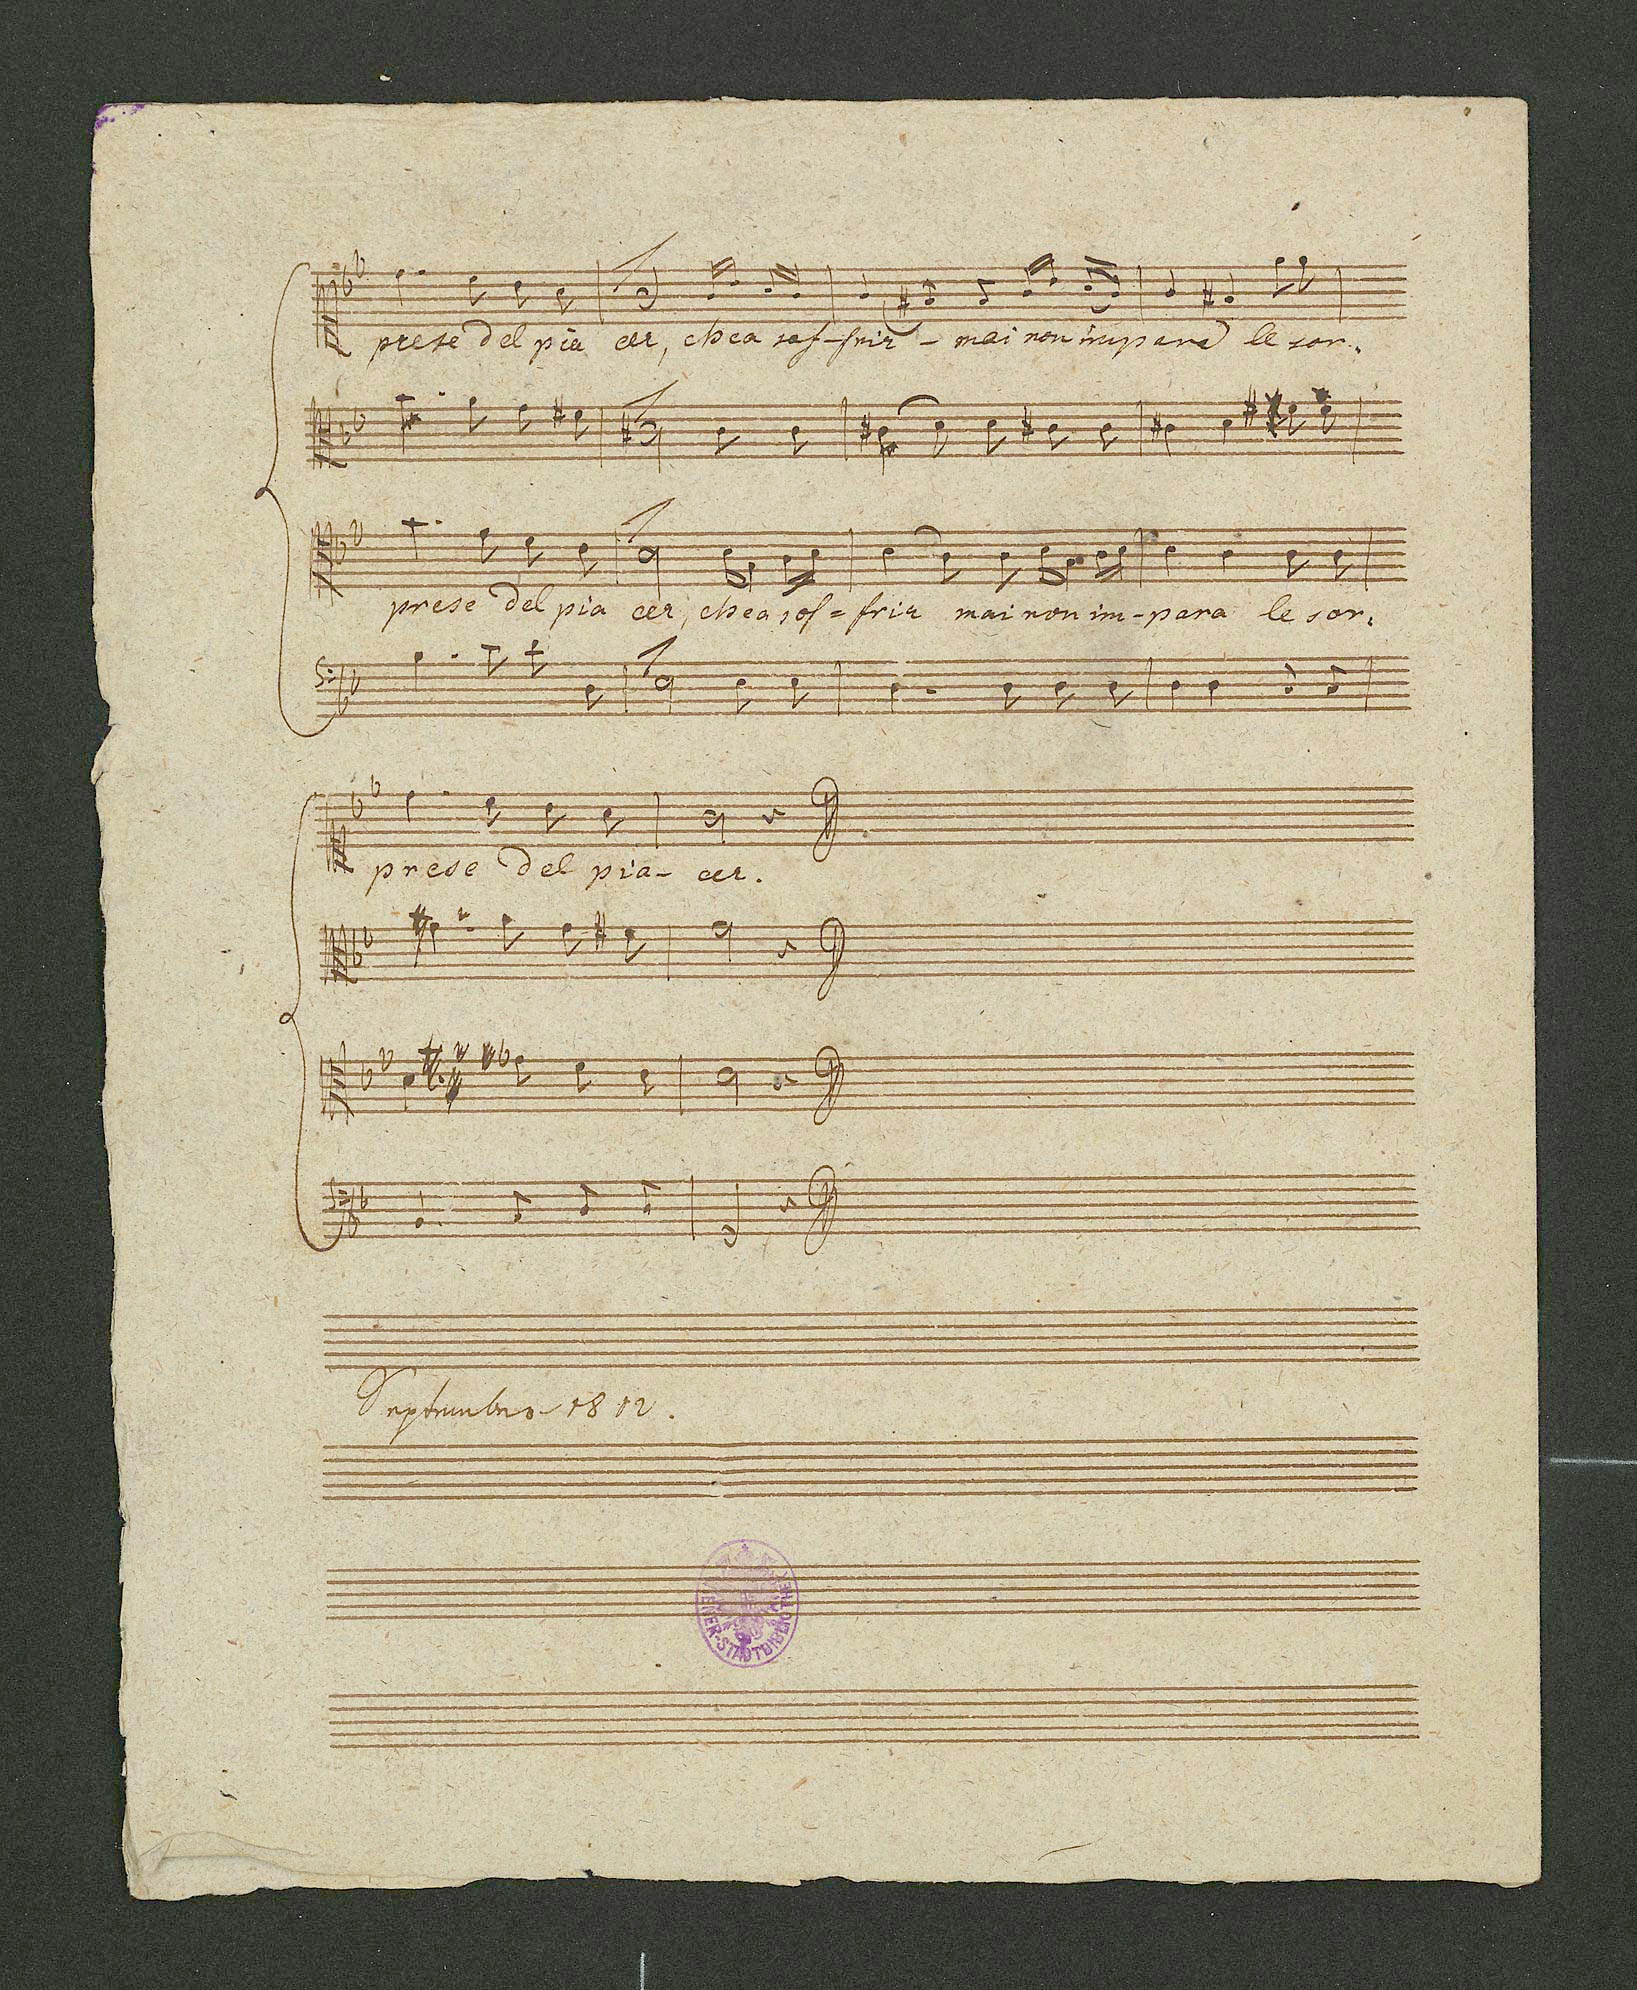 prese del pia cer, che a sof-frir - mai non impara le sor-
prese del pia cer, che a sof=frir mai non im-para le sor-
prese del pia- cer.
Septembre 1812.
WIENER-STADTBIBLIOTHEK